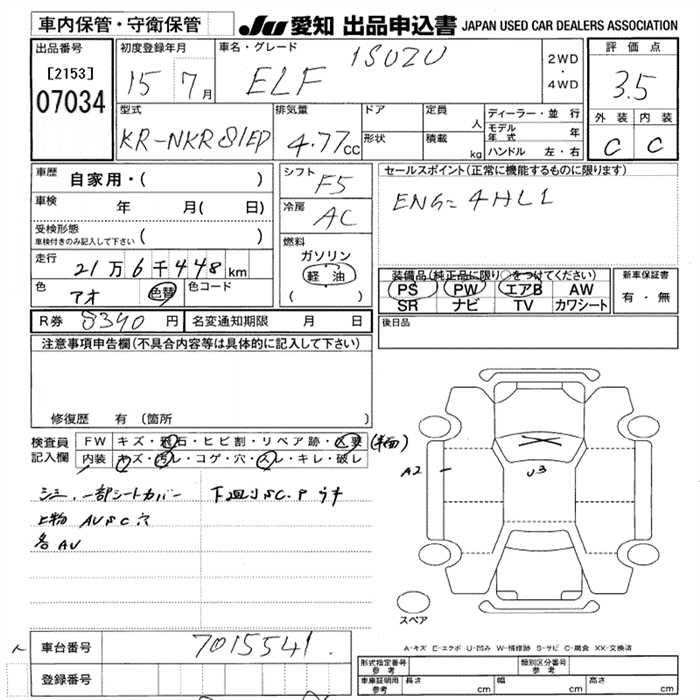 車内保管・守衛保管
JU 愛知 出品申込書 JAPAN USED CAR DEALERS ASSOCIATION
出品番号
[2153]
07034
初度登録年月
15 7月
車名・グレード
ISUZU
ELF
2WD
・
4WD
評価点
3.5
外装 内装
C C
型式
KR-NKR81ED
排気量
4.77cc
ドア
形状
定員
人
積載
kg
ディーラー・並行
モデル年式 年
ハンドル 左・右
車歴
自家用・( )
車検
年 月( 日)
受検形態
車検付きのみ記入して下さい ( )
走行
21万6千448km
色
アオ
色替
色コード
シフト
F5
冷房
AC
燃料
ガソリン
軽油
( )
セールスポイント(正常に機能するものに限ります)
ENG= 4HL1
装備品(純正品に限り○をつけてください)
PS PW エアB AW
SR ナビ TV カワシート
新車保証書
有・無
R券 8340円
名変通知期限 月 日
後日品
注意事項申告欄(不具合内容等は具体的に記入して下さい)
修復歴 有(箇所 )
検査員
記入欄
FW キズ・飛石・ヒビ割・リペア跡・X要
内装 キズ・汚レ・コゲ・穴・スレ・キレ・破レ
一部シートカバー
下廻りSC.P
上物 AUSC穴
各AU
A2
U3
スペア
A-キズ E-エクボ U-凹み W-補修跡 S-サビ C-腐食 XX-交換済
車台番号 7015541
登録番号
形式指定番号
参考
類別区分番号
参考
車庫証明用
参考
長さ cm 幅 cm 高さ cm